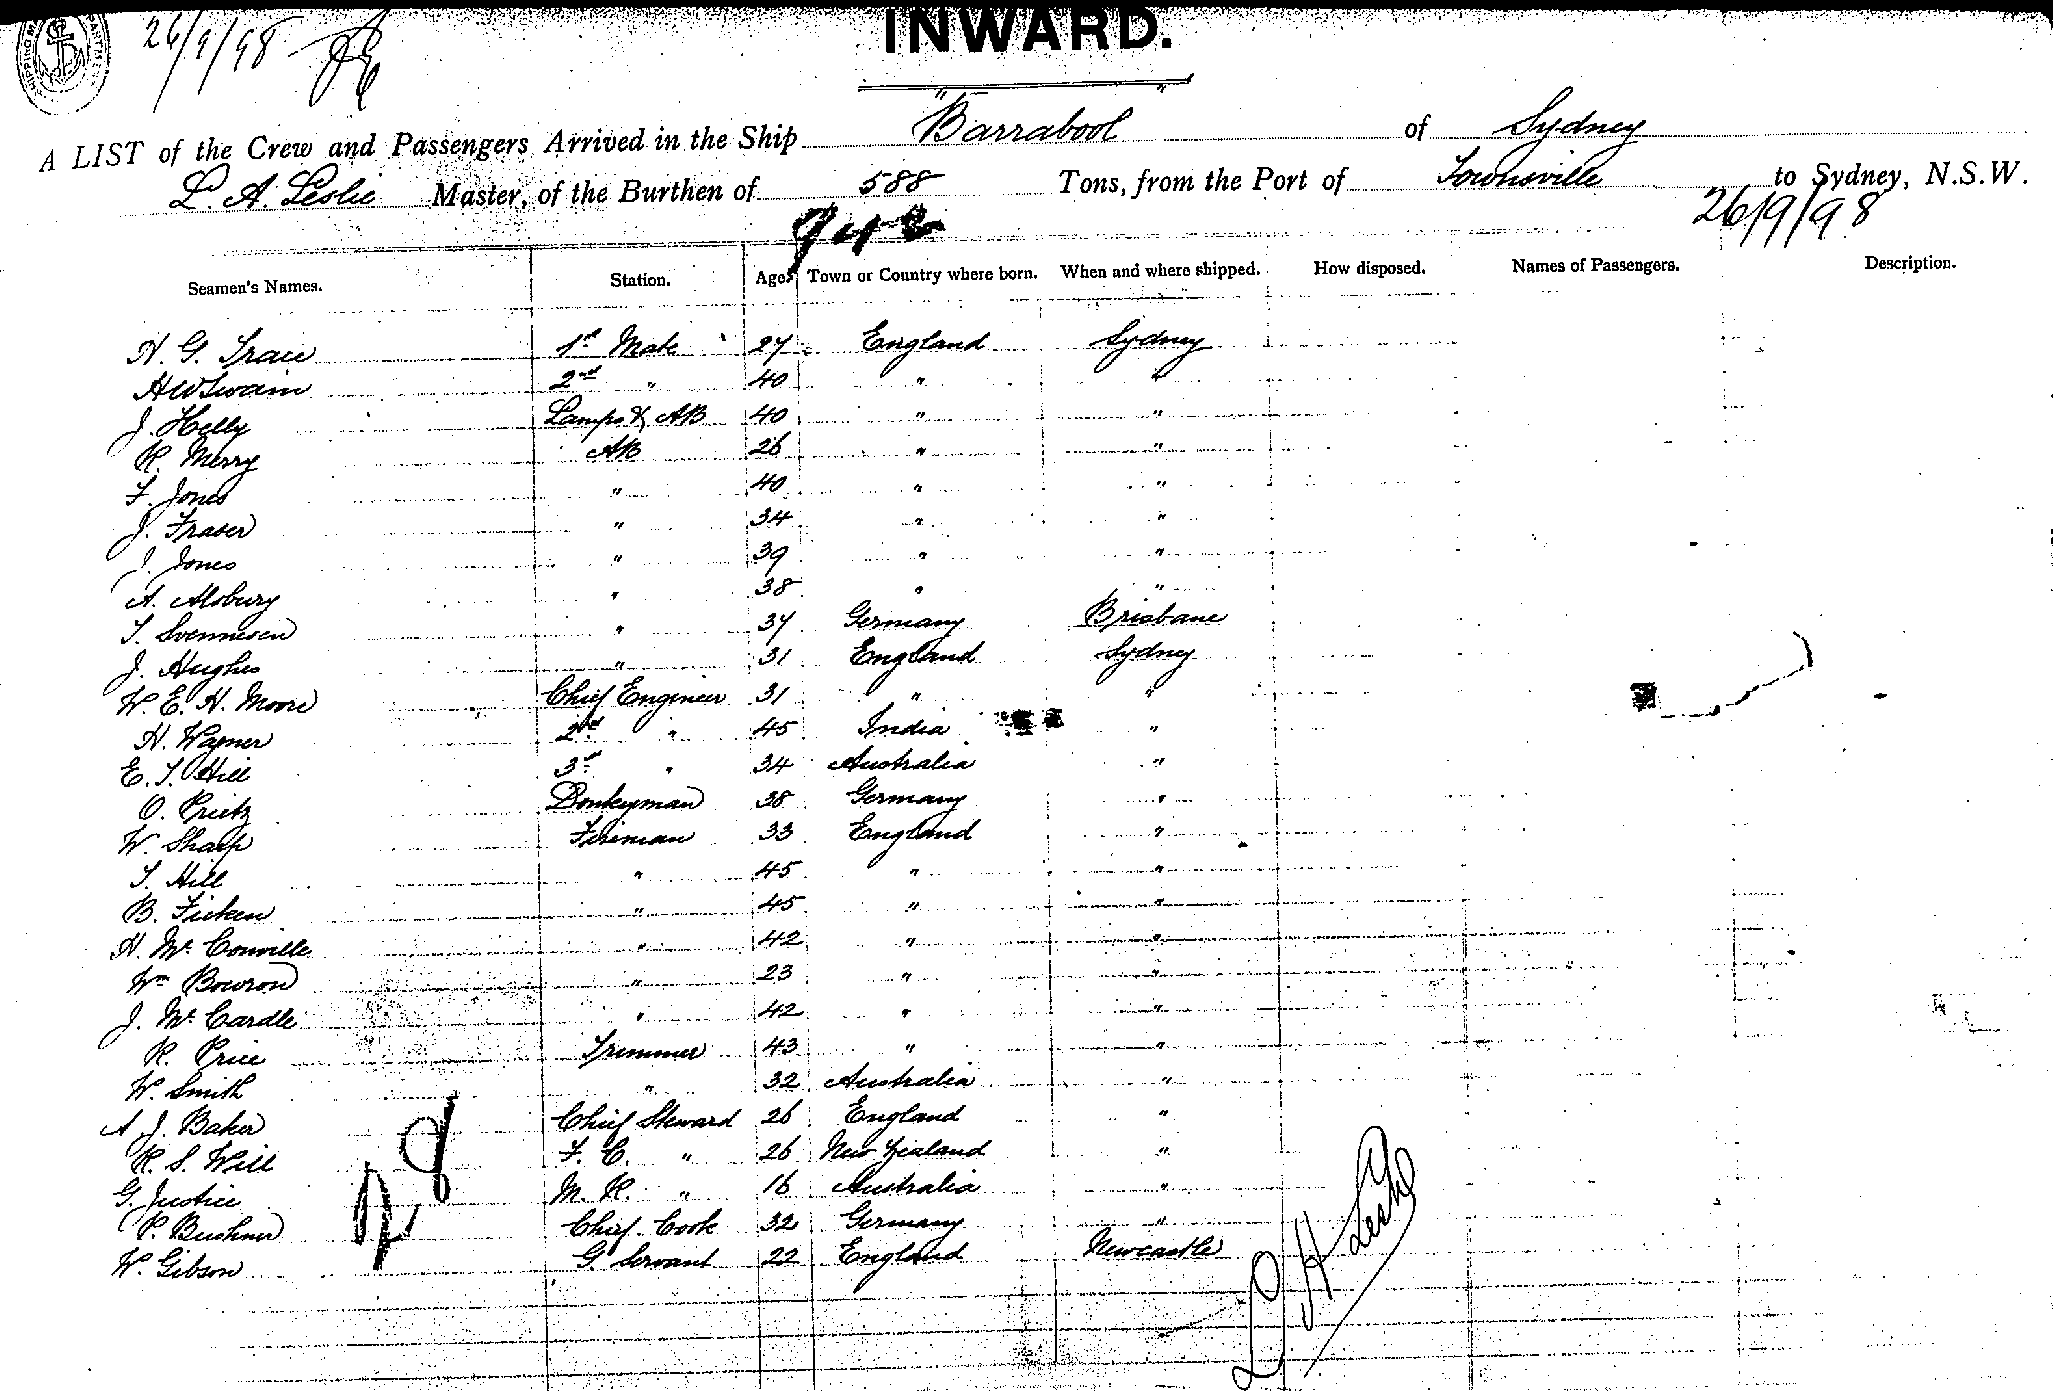 26/9/98
INWARD.
A LIST of the Crew and Passengers Arrived in the Ship "Barrabool" of Sydney
L. A. Leslie Master, of the Burthen of 588 Tons, from the Port of Townsville to Sydney, N.S.W.
942 26/9/98
Seamen's Names. Station. Age. Town or Country where born. When and where shipped. How disposed. Names of Passengers. Description.
H. G. Traie 1st Mate 27 England Sydney
H W Swain 2nd " 40 " "
J. Helly Lamps & AB 40 " "
R. Merry AB 26 " "
F. Jones " 40 " "
J. Fraser " 34 " "
J. Jones " 39 " "
A. Alsbury " 38 " "
T. Svennesen " 37 Germany Brisbane
J. Hughes " 31 England Sydney
W. E. H. Moore Chief Engineer 31 " "
H. Wagner 2nd " 45 India "
E. T. Hill 3rd " 34 Australia "
O. Prietz Donkeyman 38 Germany "
W. Sharp Fireman 33 England "
T. Hill " 45 " "
B. Ficken " 45 " "
H. Mc Conville " 42 " "
Wm Bowron " 23 " "
J. Mc Cardle " 42 " "
R. Price Trimmer 43 " "
W. Smith " 32 Australia "
A. J. Baker Chief Steward 26 England "
R. S. Will F. C. " 26 New Zealand "
G. Justice M. R. " 16 Australia "
P. Bushner Chief Cook 32 Germany "
W. Gibson G. Servant 22 England Newcastle
L A Leslie